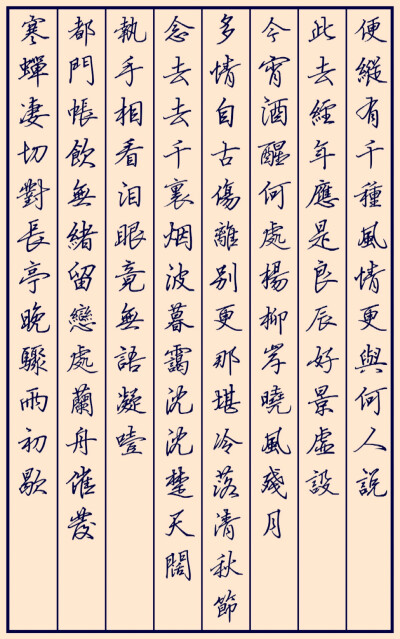 寒蟬凄切對長亭晚驟雨初歇
都門帳飲無緒留戀處蘭舟催發
執手相看泪眼竟無語凝噎
念去去千裏烟波暮靄沈沈楚天闊
多情自古傷離别更那堪冷落清秋節
今宵酒醒何處楊柳岸曉風殘月
此去經年應是良辰好景虛設
便縱有千種風情更與何人説